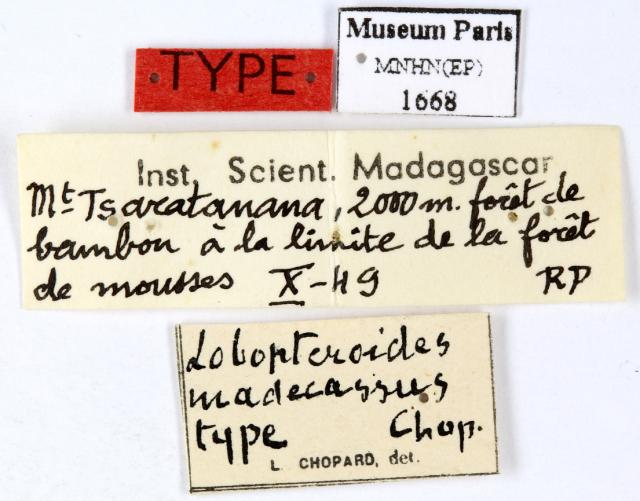 TYPE
Museum Paris
MNHN(EP)
1668
Inst. Scient. Madagascar
Mt Tsaratanana, 2000 m. forêt de
bambou à la limite de la forêt
de mousses X-49 RP
Lobopteroides
madecassus
type Chop.
L. CHOPARD, det.